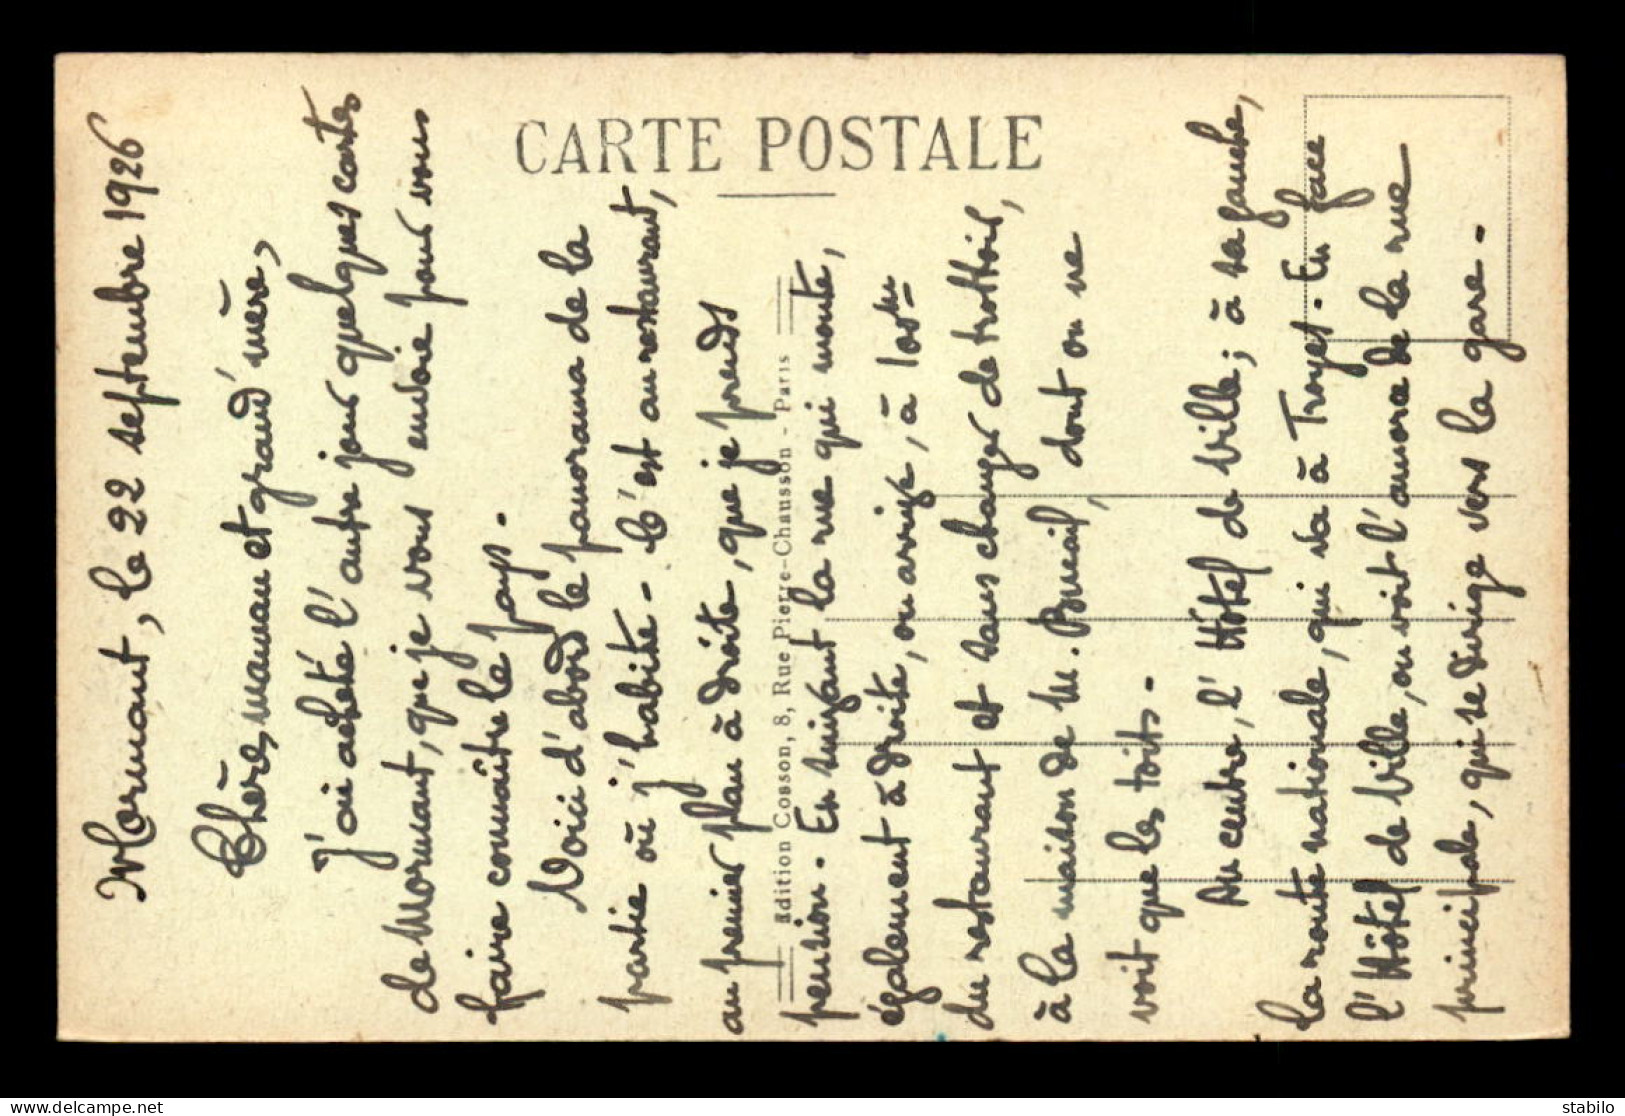 CARTE POSTALE
Edition Cosson, 8, Rue Pierre-Chausson - Paris
Mormant, le 22 septembre 1926
Chère maman et grand'mère,
J'ai acheté l'autre jour quelques cartes
de Mormant, que je vous envoie pour vous
faire connaître le pays.
Voici d'abord le panorama de la
partie où j'habite - C'est au restaurant,
au premier plan à droite, que je prends
pension. En suivant la rue qui monte,
également à droite, on arrive, à 100m
du restaurant et sans changer de trottoir,
à la maison de M. dont on ne
voit que les toits.
Au centre, l'Hôtel de Ville; à sa gauche,
la route nationale, qui va à Troyes. En face
l'Hôtel de Ville, on voit l'amorce de la rue
principale, qui se dirige vers la gare.
stabilo
www.delcampe.net